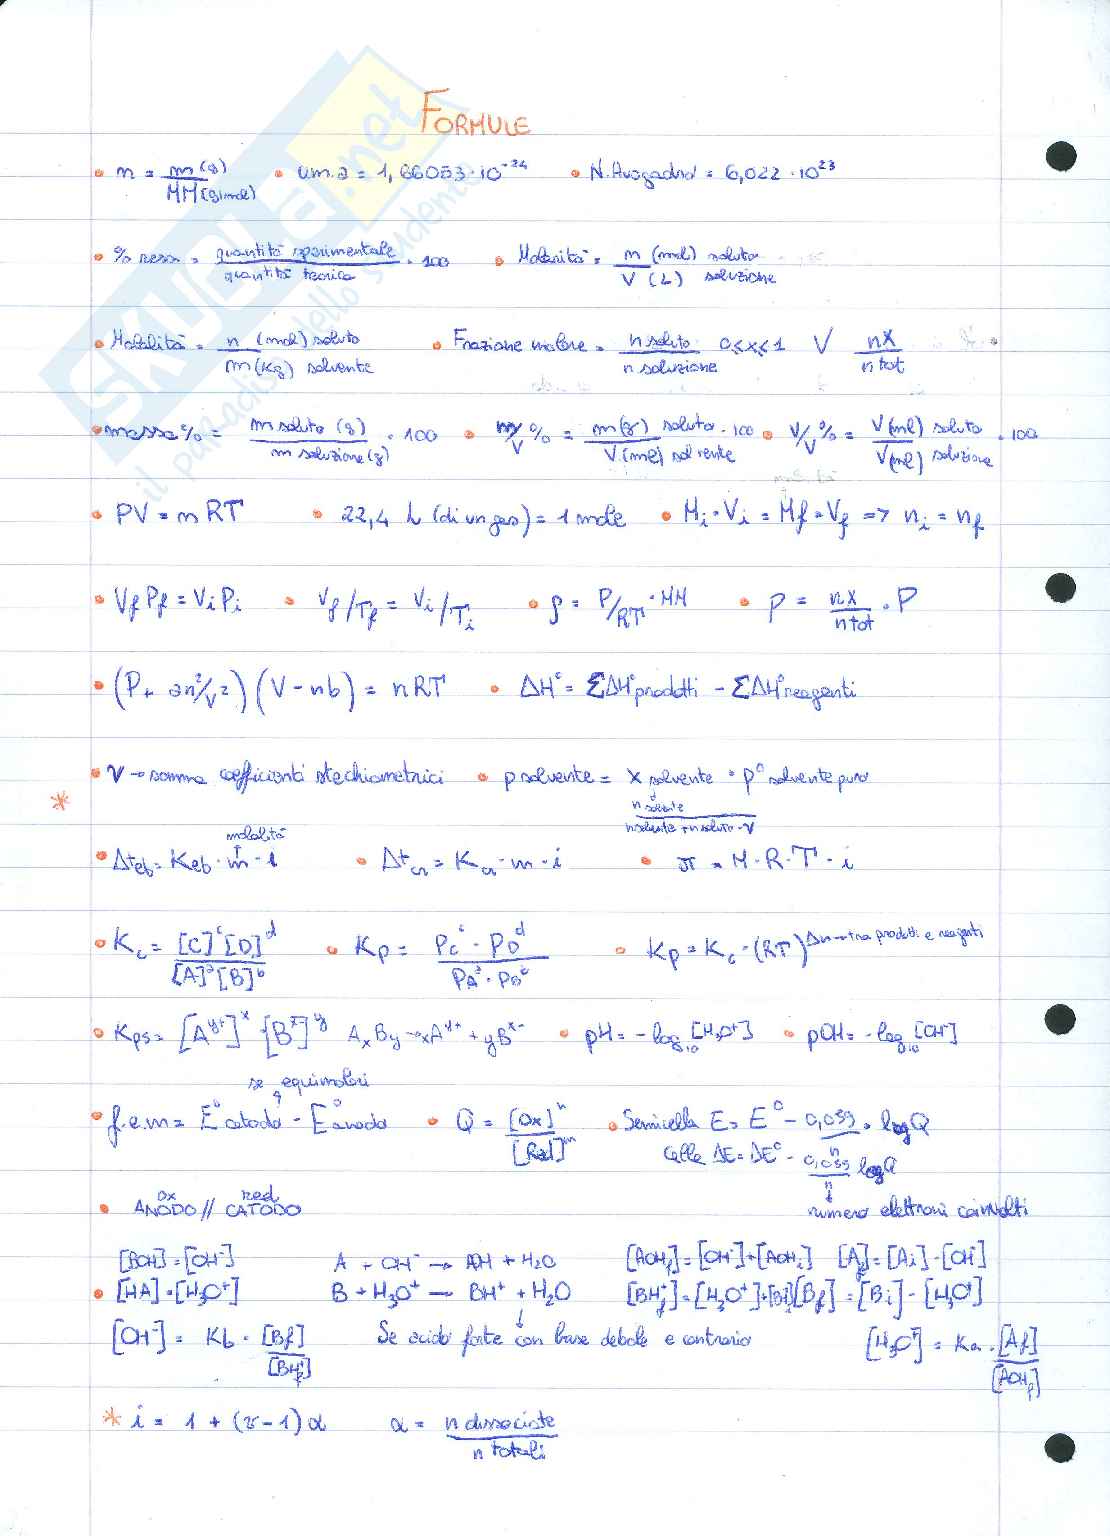 FORMULE
• n = m (g) / MM (g/mol) • u.m.a = 1,66053 · 10⁻²⁴ • N. Avogadro = 6,022 · 10²³
• % resa = quantità sperimentale / quantità teorica · 100 • Molarità = n (mol) soluto / V (L) soluzione
• Molalità = n (mol) soluto / m (Kg) solvente • Frazione molare = n soluto / n soluzione 0≤x≤1 V nX / n tot
• massa % = m soluto (g) / m soluzione (g) · 100 • m/V % = m(g) soluto / V(ml) solvente · 100 • V/V % = V(ml) soluto / V(ml) soluzione · 100
• PV = nRT • 22,4 L (di un gas) = 1 mole • Mi · Vi = Mf · Vf => ni = nf
• Vf Pf = Vi Pi • Vf/Tf = Vi/Ti • ρ = P/RT · MM • p = nX / n tot · P
• (P + an²/V²) (V - nb) = nRT • ΔH° = ΣΔH°prodotti - ΣΔH°reagenti
• ν → somma coefficienti stechiometrici • p solvente = X solvente · p° solvente puro
* n solvente / n solvente + n soluto · ν
molalità
• Δteb = Keb · m · i • Δtcr = Kcr · m · i • π = M · R · T · i
• Kc = [C]ᶜ [D]ᵈ / [A]ᵃ [B]ᵇ • Kp = PCᶜ · PDᵈ / PAᵃ · PBᵇ • Kp = Kc · (RT)^Δn → tra prodotti e reagenti
• Kps = [Aʸ⁺]ˣ [Bˣ⁻]ʸ AxBy → xAʸ⁺ + yBˣ⁻ • pH = -log₁₀ [H₃O⁺] • pOH = -log₁₀ [OH⁻]
se equimolari
• f.e.m = E° catodo - E° anodo • Q = [Ox]ⁿ / [Red]ᵐ • Semicella E = E° - 0,059 / n · log Q
Celle ΔE = ΔE° - 0,059 / n log Q
• ANODO // CATODO ox red numero elettroni coinvolti
[BOH] = [OH⁻] A + OH⁻ → AH + H₂O [AOHf] = [OH⁻] + [AOHi] [Af] = [Ai] - [OH⁻]
• [HA] = [H₃O⁺] B + H₃O⁺ → BH⁺ + H₂O [BHf⁺] = [H₃O⁺] + [Bi] [Bf] = [Bi] - [H₃O⁺]
[OH⁻] = Kb · [Bf] / [BHf⁺] Se acido forte con base debole e contrario [H₃O⁺] = Ka · [Af] / [AOHf]
* i = 1 + (ν - 1) α α = n dissociate / n totali
SKUOLA.net
il paradiso dello studente